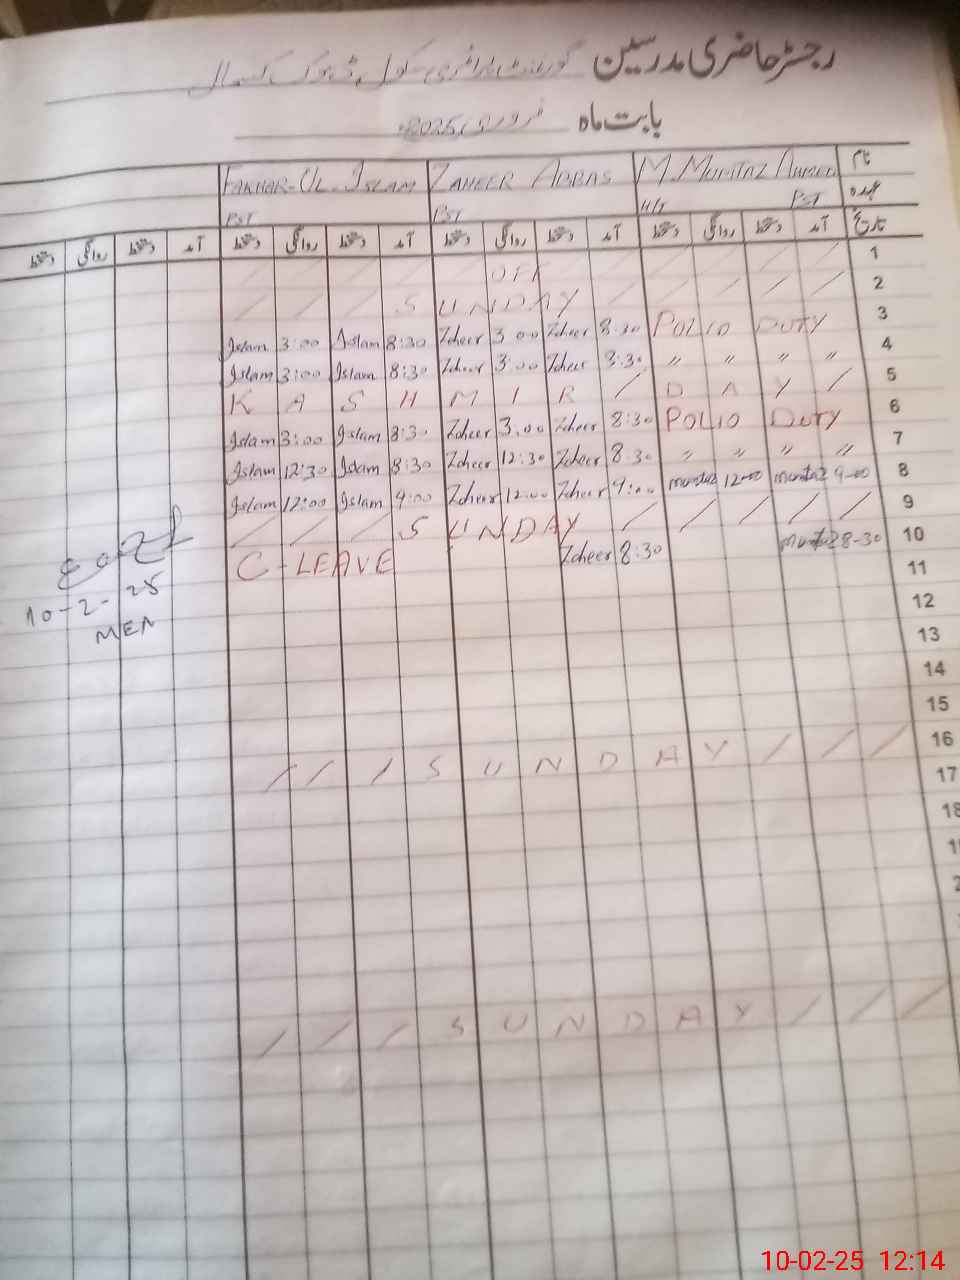 رجسٹر حاضری مدرسین گورنمنٹ پرائمری سکول ڈھوک
بابت ماہ فروری 2025ء
نام M. MUMTAZ AHMED ZAHEER ABBAS FAKHAR-UL-ISLAM
عہدہ PST H/T PST PST
تاریخ آمد دستخط روانگی دستخط آمد دستخط روانگی دستخط آمد دستخط روانگی دستخط آمد دستخط روانگی دستخط
1 / / / / / OFF / / / /
2 / / / / S U N D A Y / / / /
3 Islam 3:00 Islam 8:30 Zaheer 3:00 Zaheer 8:30 POLIO DUTY
4 Islam 3:00 Islam 8:30 Zaheer 3:00 Zaheer 8:30 〃 〃 〃 〃
5 K A S H M I R / D A Y /
6 Islam 3:00 Islam 8:30 Zaheer 3:00 Zaheer 8:30 POLIO DUTY
7 Islam 12:30 Islam 8:30 Zaheer 12:30 Zaheer 8:30 〃 〃 〃 〃
8 Islam 12:00 Islam 9:00 Zaheer 12:00 Zaheer 9:00 mumtaz 12-00 mumtaz 9-00
9 / / / S U N D A Y / / / / /
10 C-LEAVE Zaheer 8:30 mumtaz 8-30
11
10-2-25
12
MEA
13
14
15
16 / / / S U N D A Y / / /
17
18
/ / / S U N D A Y / / /
10-02-25 12:14